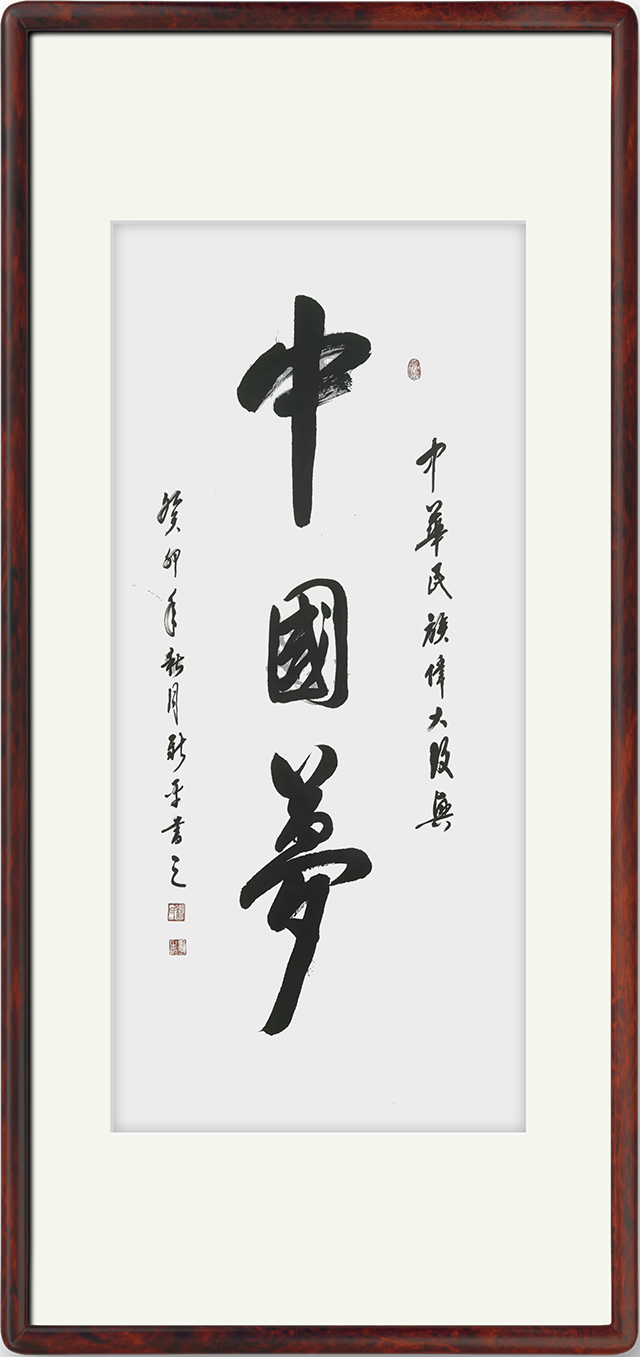 中華民族偉大復興
中國夢
癸卯年秋月新平書之